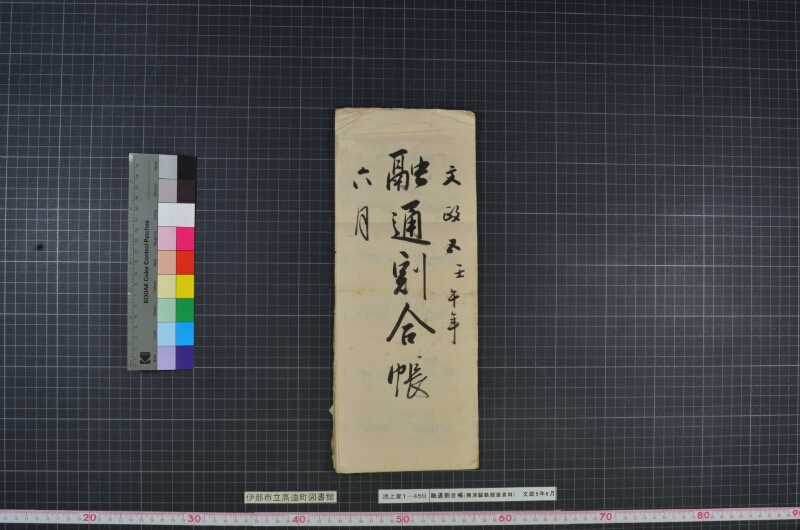 文政五壬午年
融通割合帳
六月
KODAK Color Control Patches
Kodak
伊那市立高遠町図書館
池上家1-459
融通割合帳(興津騒動関連資料) 文政5年6月
20 30 40 50 60 70 80 90